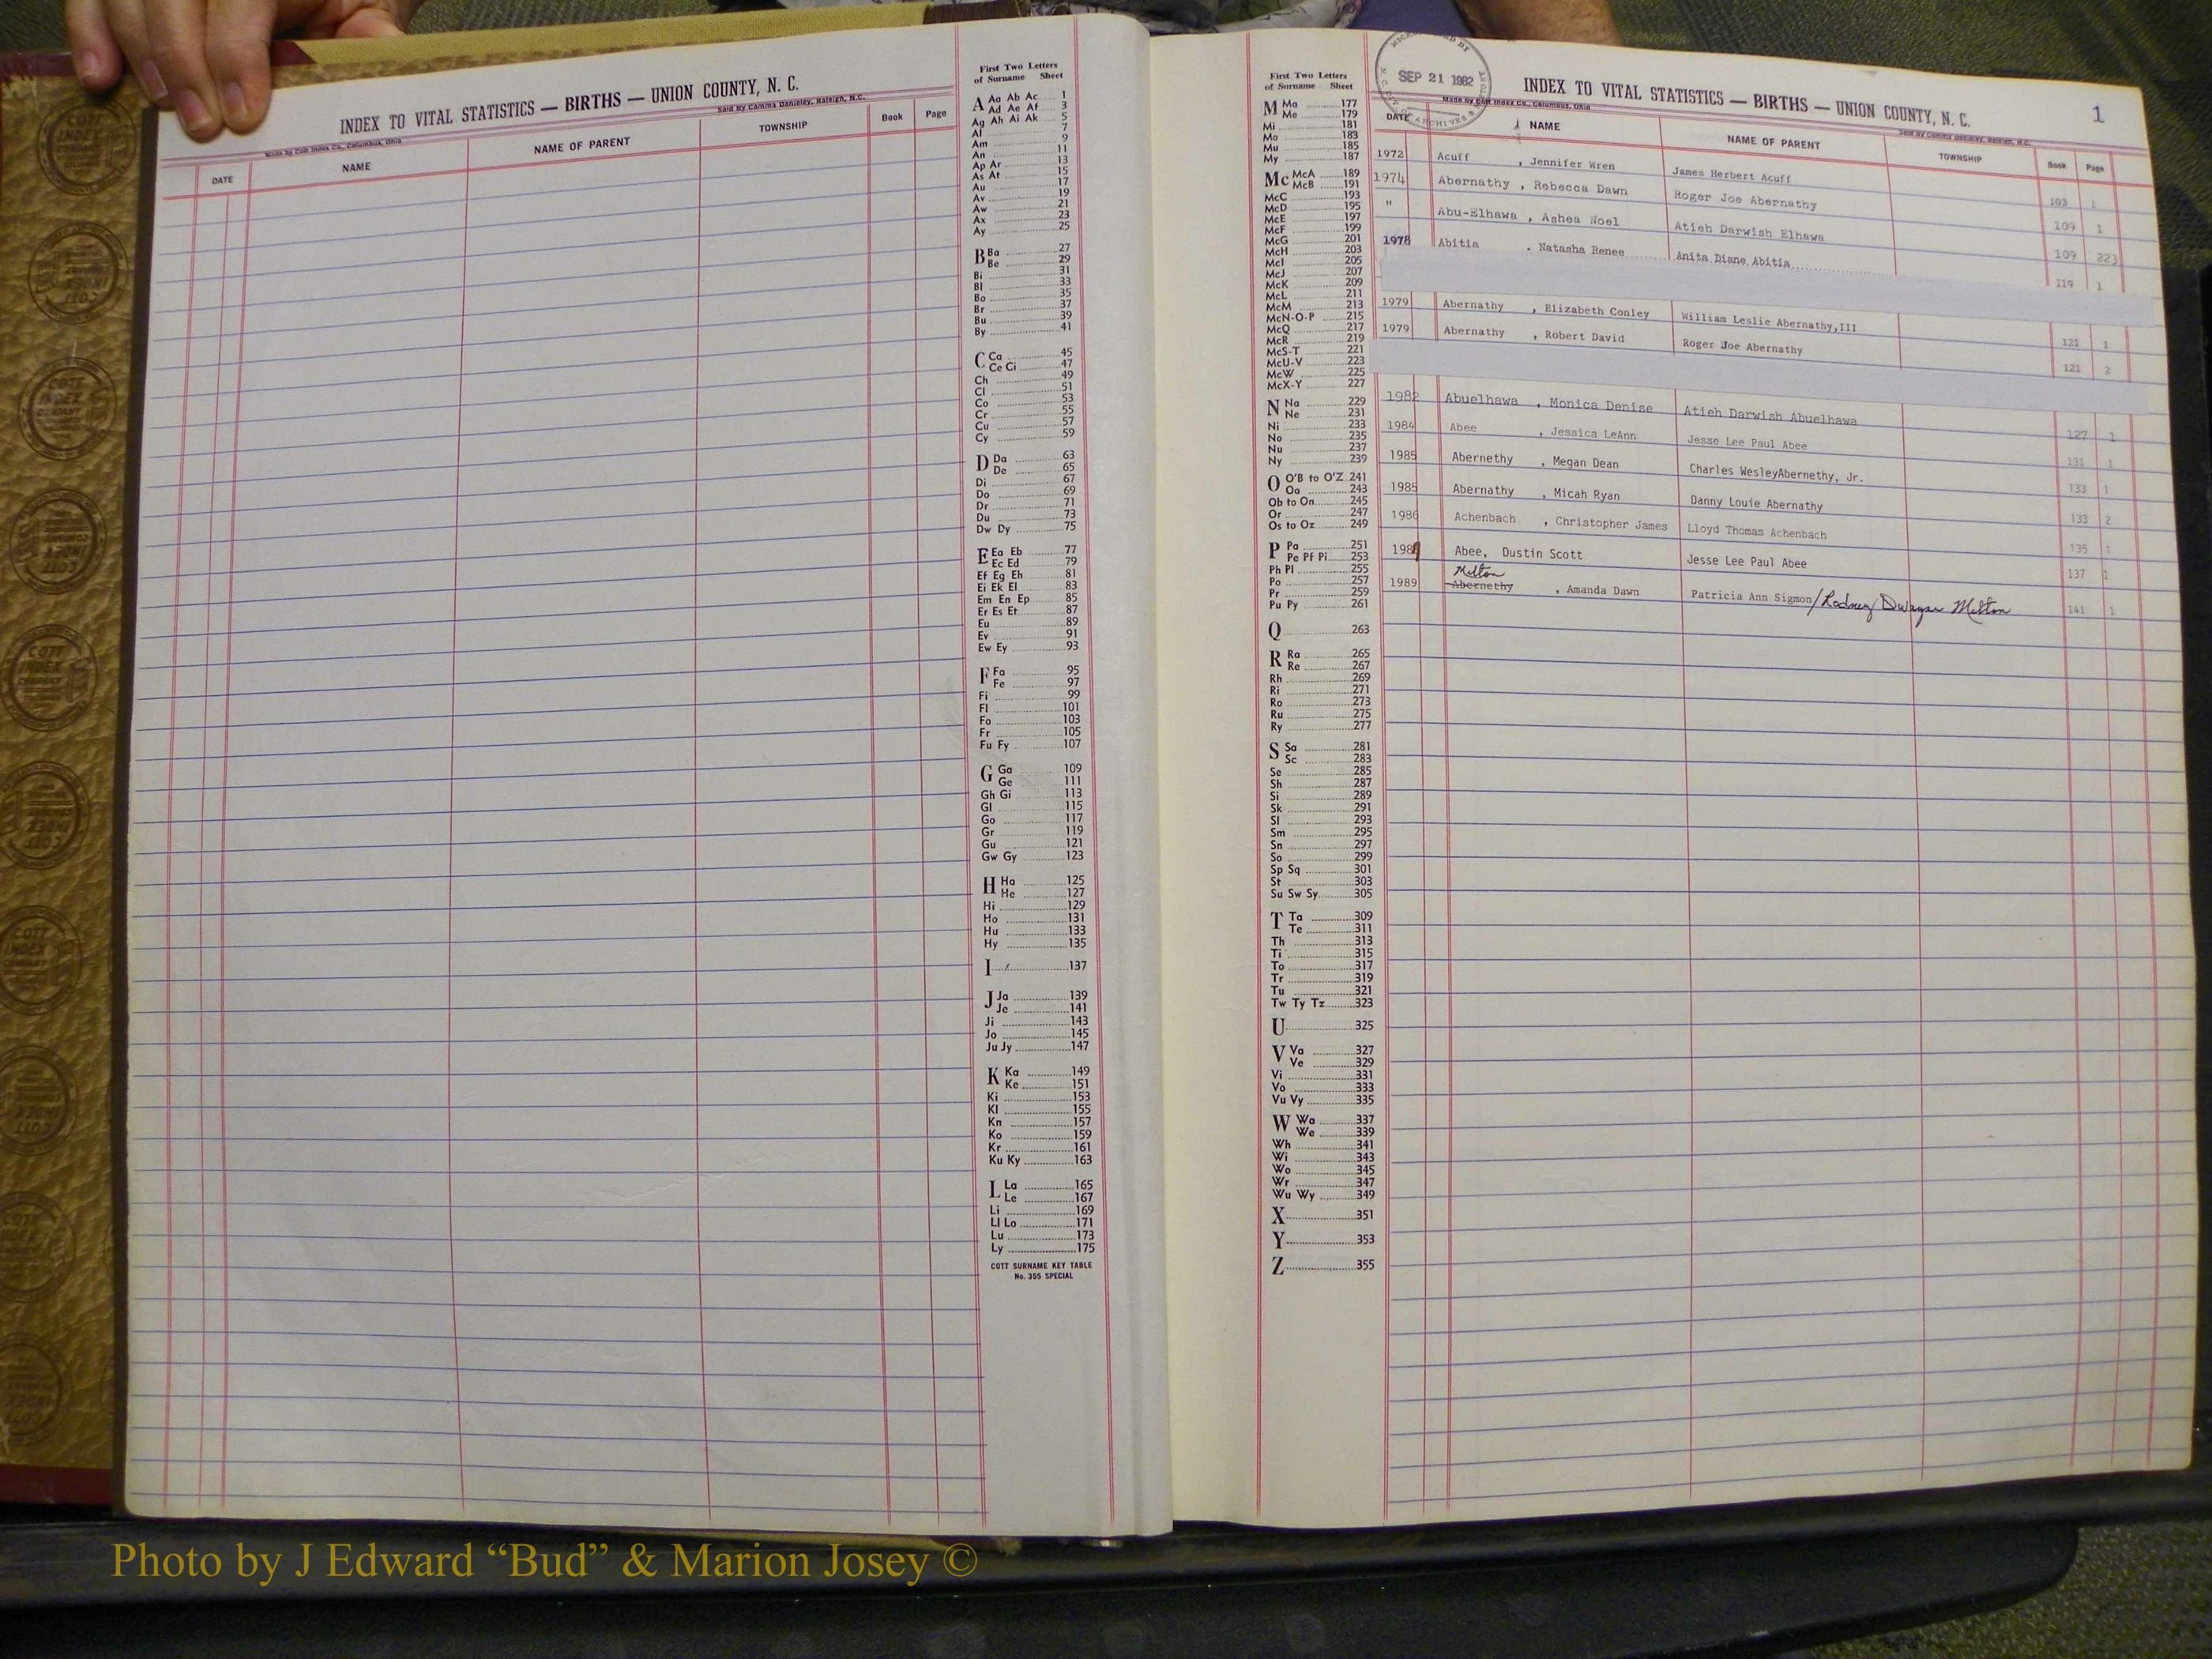 INDEX TO VITAL STATISTICS — BIRTHS — UNION COUNTY, N. C.
Made by Cott Index Co., Columbus, Ohio
Sold By Comma Danieley, Raleigh, N.C.
DATE NAME NAME OF PARENT TOWNSHIP Book Page
First Two Letters
of Surname Sheet
A Aa Ab Ac 1
Ad Ae Af 3
Ag Ah Ai Ak 5
Al 7
Am 9
An 11
Ap Ar 13
As At 15
Au 17
Av 19
Aw 21
Ax 23
Ay 25
B Ba 27
Be 29
Bi 31
Bl 33
Bo 35
Br 37
Bu 39
By 41
C Ca 45
Ce Ci 47
Ch 49
Cl 51
Co 53
Cr 55
Cu 57
Cy 59
D Da 63
De 65
Di 67
Do 69
Dr 71
Du 73
Dw Dy 75
E Ea Eb 77
Ec Ed 79
Ef Eg Eh 81
Ei Ek El 83
Em En Ep 85
Er Es Et 87
Eu 89
Ev 91
Ew Ey 93
F Fa 95
Fe 97
Fi 99
Fl 101
Fo 103
Fr 105
Fu Fy 107
G Ga 109
Ge 111
Gh Gi 113
Gl 115
Go 117
Gr 119
Gu 121
Gw Gy 123
H Ha 125
He 127
Hi 129
Ho 131
Hu 133
Hy 135
I 137
J Ja 139
Je 141
Ji 143
Jo 145
Ju Jy 147
K Ka 149
Ke 151
Ki 153
Kl 155
Kn 157
Ko 159
Kr 161
Ku Ky 163
L La 165
Le 167
Li 169
Ll Lo 171
Lu 173
Ly 175
COTT SURNAME KEY TABLE
No. 355 SPECIAL
First Two Letters
of Surname Sheet
M Ma 177
Me 179
Mi 181
Mo 183
Mu 185
My 187
Mc McA 189
McB 191
McC 193
McD 195
McE 197
McF 199
McG 201
McH 203
McI 205
McJ 207
McK 209
McL 211
McM 213
McN-O-P 215
McQ 217
McR 219
McS-T 221
McU-V 223
McW 225
McX-Y 227
N Na 229
Ne 231
Ni 233
No 235
Nu 237
Ny 239
O O'B to O'Z 241
Oa 243
Ob to On 245
Or 247
Os to Oz 249
P Pa 251
Pe Pf Pi 253
Ph Pl 255
Po 257
Pr 259
Pu Py 261
Q 263
R Ra 265
Re 267
Rh 269
Ri 271
Ro 273
Ru 275
Ry 277
S Sa 281
Sc 283
Se 285
Sh 287
Si 289
Sk 291
Sl 293
Sm 295
Sn 297
So 299
Sp Sq 301
St 303
Su Sw Sy 305
T Ta 309
Te 311
Th 313
Ti 315
To 317
Tr 319
Tu 321
Tw Ty Tz 323
U 325
V Va 327
Ve 329
Vi 331
Vo 333
Vu Vy 335
W Wa 337
We 339
Wh 341
Wi 343
Wo 345
Wr 347
Wu Wy 349
X 351
Y 353
Z 355
SEP 21 1982
ARCHIVES
INDEX TO VITAL STATISTICS — BIRTHS — UNION COUNTY, N. C. 1
Made by Cott Index Co., Columbus, Ohio
Sold By Comma Danieley, Raleigh, N.C.
DATE NAME NAME OF PARENT TOWNSHIP Book Page
1972 Acuff , Jennifer Wren James Herbert Acuff 103 1
1974 Abernathy , Rebecca Dawn Roger Joe Abernathy 109 1
" Abu-Elhawa , Ashea Noel Atieh Darwish Elhawa 109 223
1978 Abitia . Natasha Renee Anita Diane Abitia 119 1
1979 Abernathy , Elizabeth Conley William Leslie Abernathy,III 121 1
1979 Abernathy , Robert David Roger Joe Abernathy 121 2
1982 Abuelhawa , Monica Denise Atieh Darwish Abuelhawa 127 1
1984 Abee , Jessica LeAnn Jesse Lee Paul Abee 131 1
1985 Abernethy , Megan Dean Charles WesleyAbernethy, Jr. 133 1
1985 Abernathy , Micah Ryan Danny Louie Abernathy 133 2
1986 Achenbach , Christopher James Lloyd Thomas Achenbach 135 1
198 Abee, Dustin Scott Jesse Lee Paul Abee 137 1
Melton
1989 Abernethy , Amanda Dawn Patricia Ann Sigmon/Rodney Melton 141 1
Photo by J Edward “Bud” & Marion Josey ©